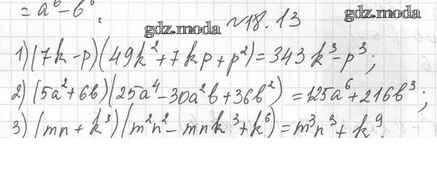 = a⁶ - b⁶.
gdz.moda
№18.13
gdz.moda
1) (7k - p)(49k² + 7kp + p²) = 343k³ - p³;
2) (5a² + 6b)(25a⁴ - 30a²b + 36b²) = 125a⁶ + 216b³;
3) (mn + k³)(m²n² - mnk³ + k⁶) = m³n³ + k⁹.